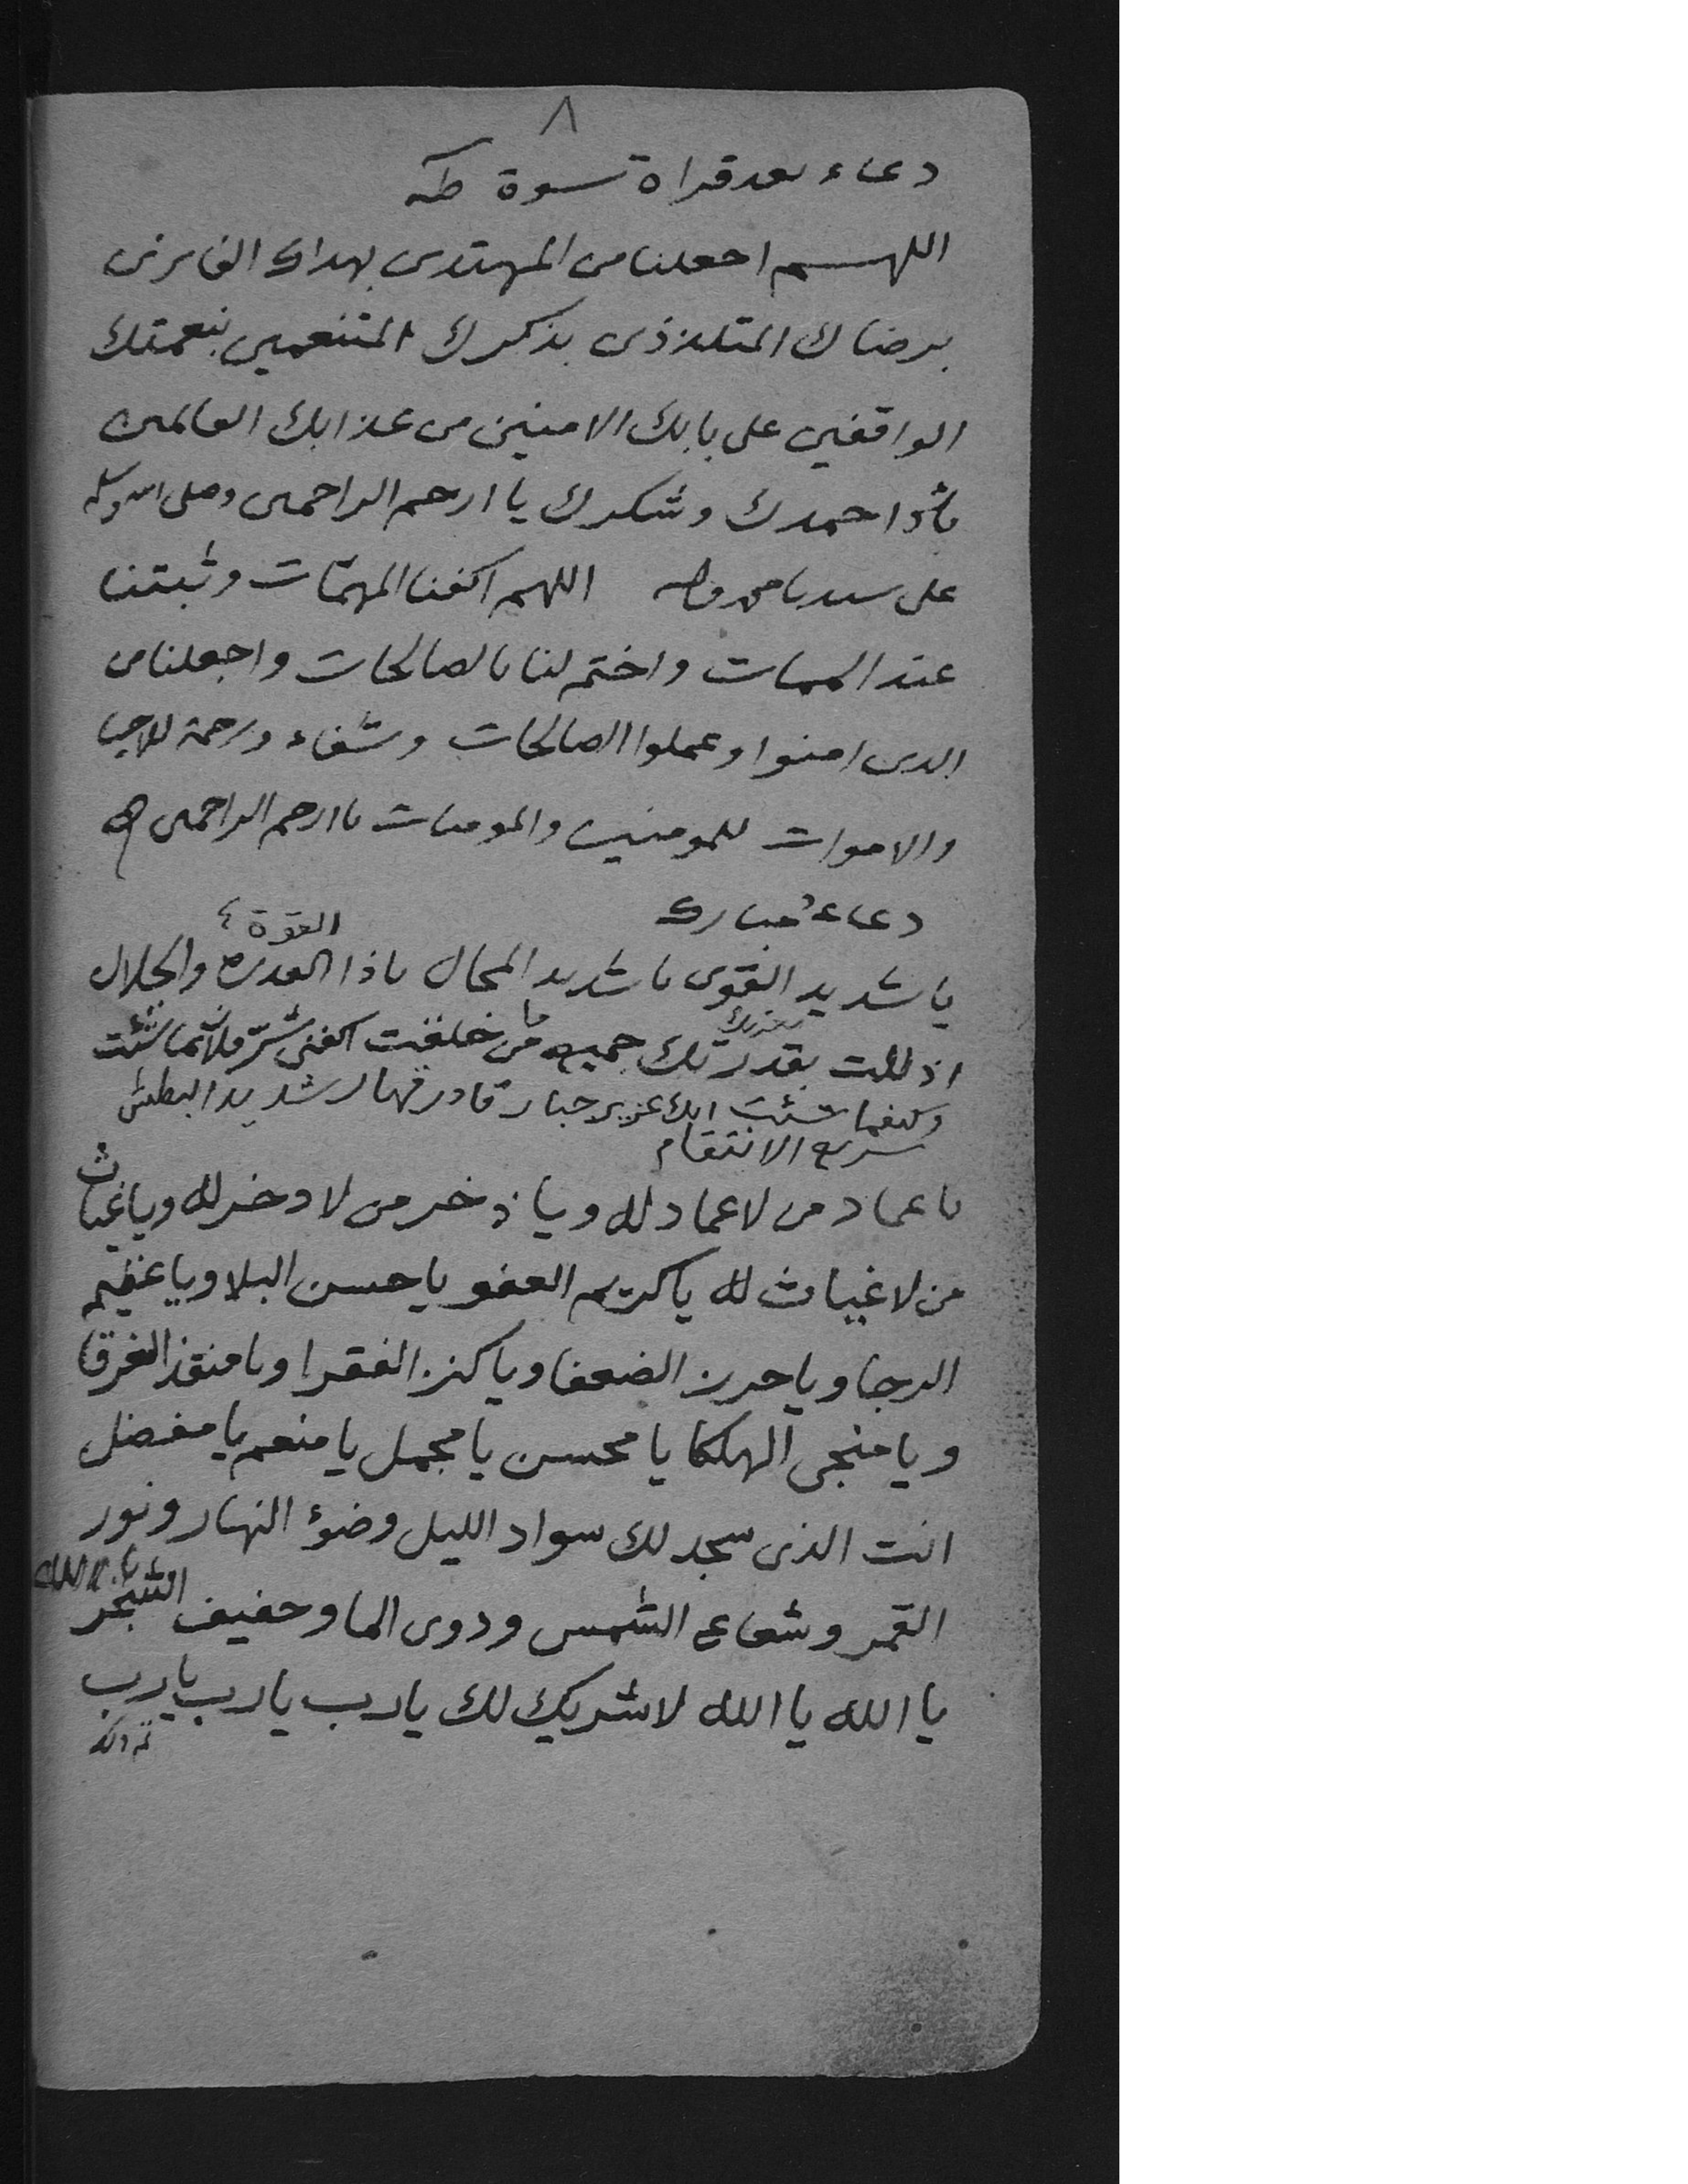 ٨
دعاء بعد قراة سوة طه
اللهم اجعلنا من المهتدين بهداك الفايزين
برضاك المتلذذين بذكرك المتنعمين بنعمتك
الواقفين على بابك الامنين من عذابك العالمين
حمدك وشكرك يا ارحم الراحمين وصلى الله وسلم
على سيدنا محمد واله اللهم اكفنا المهمّات وثبتنا
عند الممات واختم لنا بالصالحات واجعلنا من
الذين امنوا وعملوا الصالحات وشفاء ورحمة للاحيا
والاموات للمومنين والمومنات يا ارحم الراحمين
دعاءٌ مبارك
القوة
يا شديد القوى يا شديد المحال ياذا القدرة والجلال
بعزتك ما
اذللت بقدرتك جميع من خلقت اكفني شرّ شئت
وكيفما شئت انك عزيز جبار قادر قهار شديد البطش
سريع الانتقام
يا عماد من لا عماد له ويا ذخر من لا دخر له ويا غياث
من لا غياث له يا كريم العفو يا حسن البلا ويا عظيم
الرجا ويا حرز الضعفا ويا كنز الفقرا ويا منقذ الغرقا
ويا منجي الهلكا يا محسن يا مجمل يا منعم يا مفضل
انت الذي سجد لك سواد الليل وضؤ النهار ونور
القمر وشعاع الشمس ودوي الما وحفيف الشجر يا الله
يا الله يا الله لا شريك لك يا رب يا رب يا رب